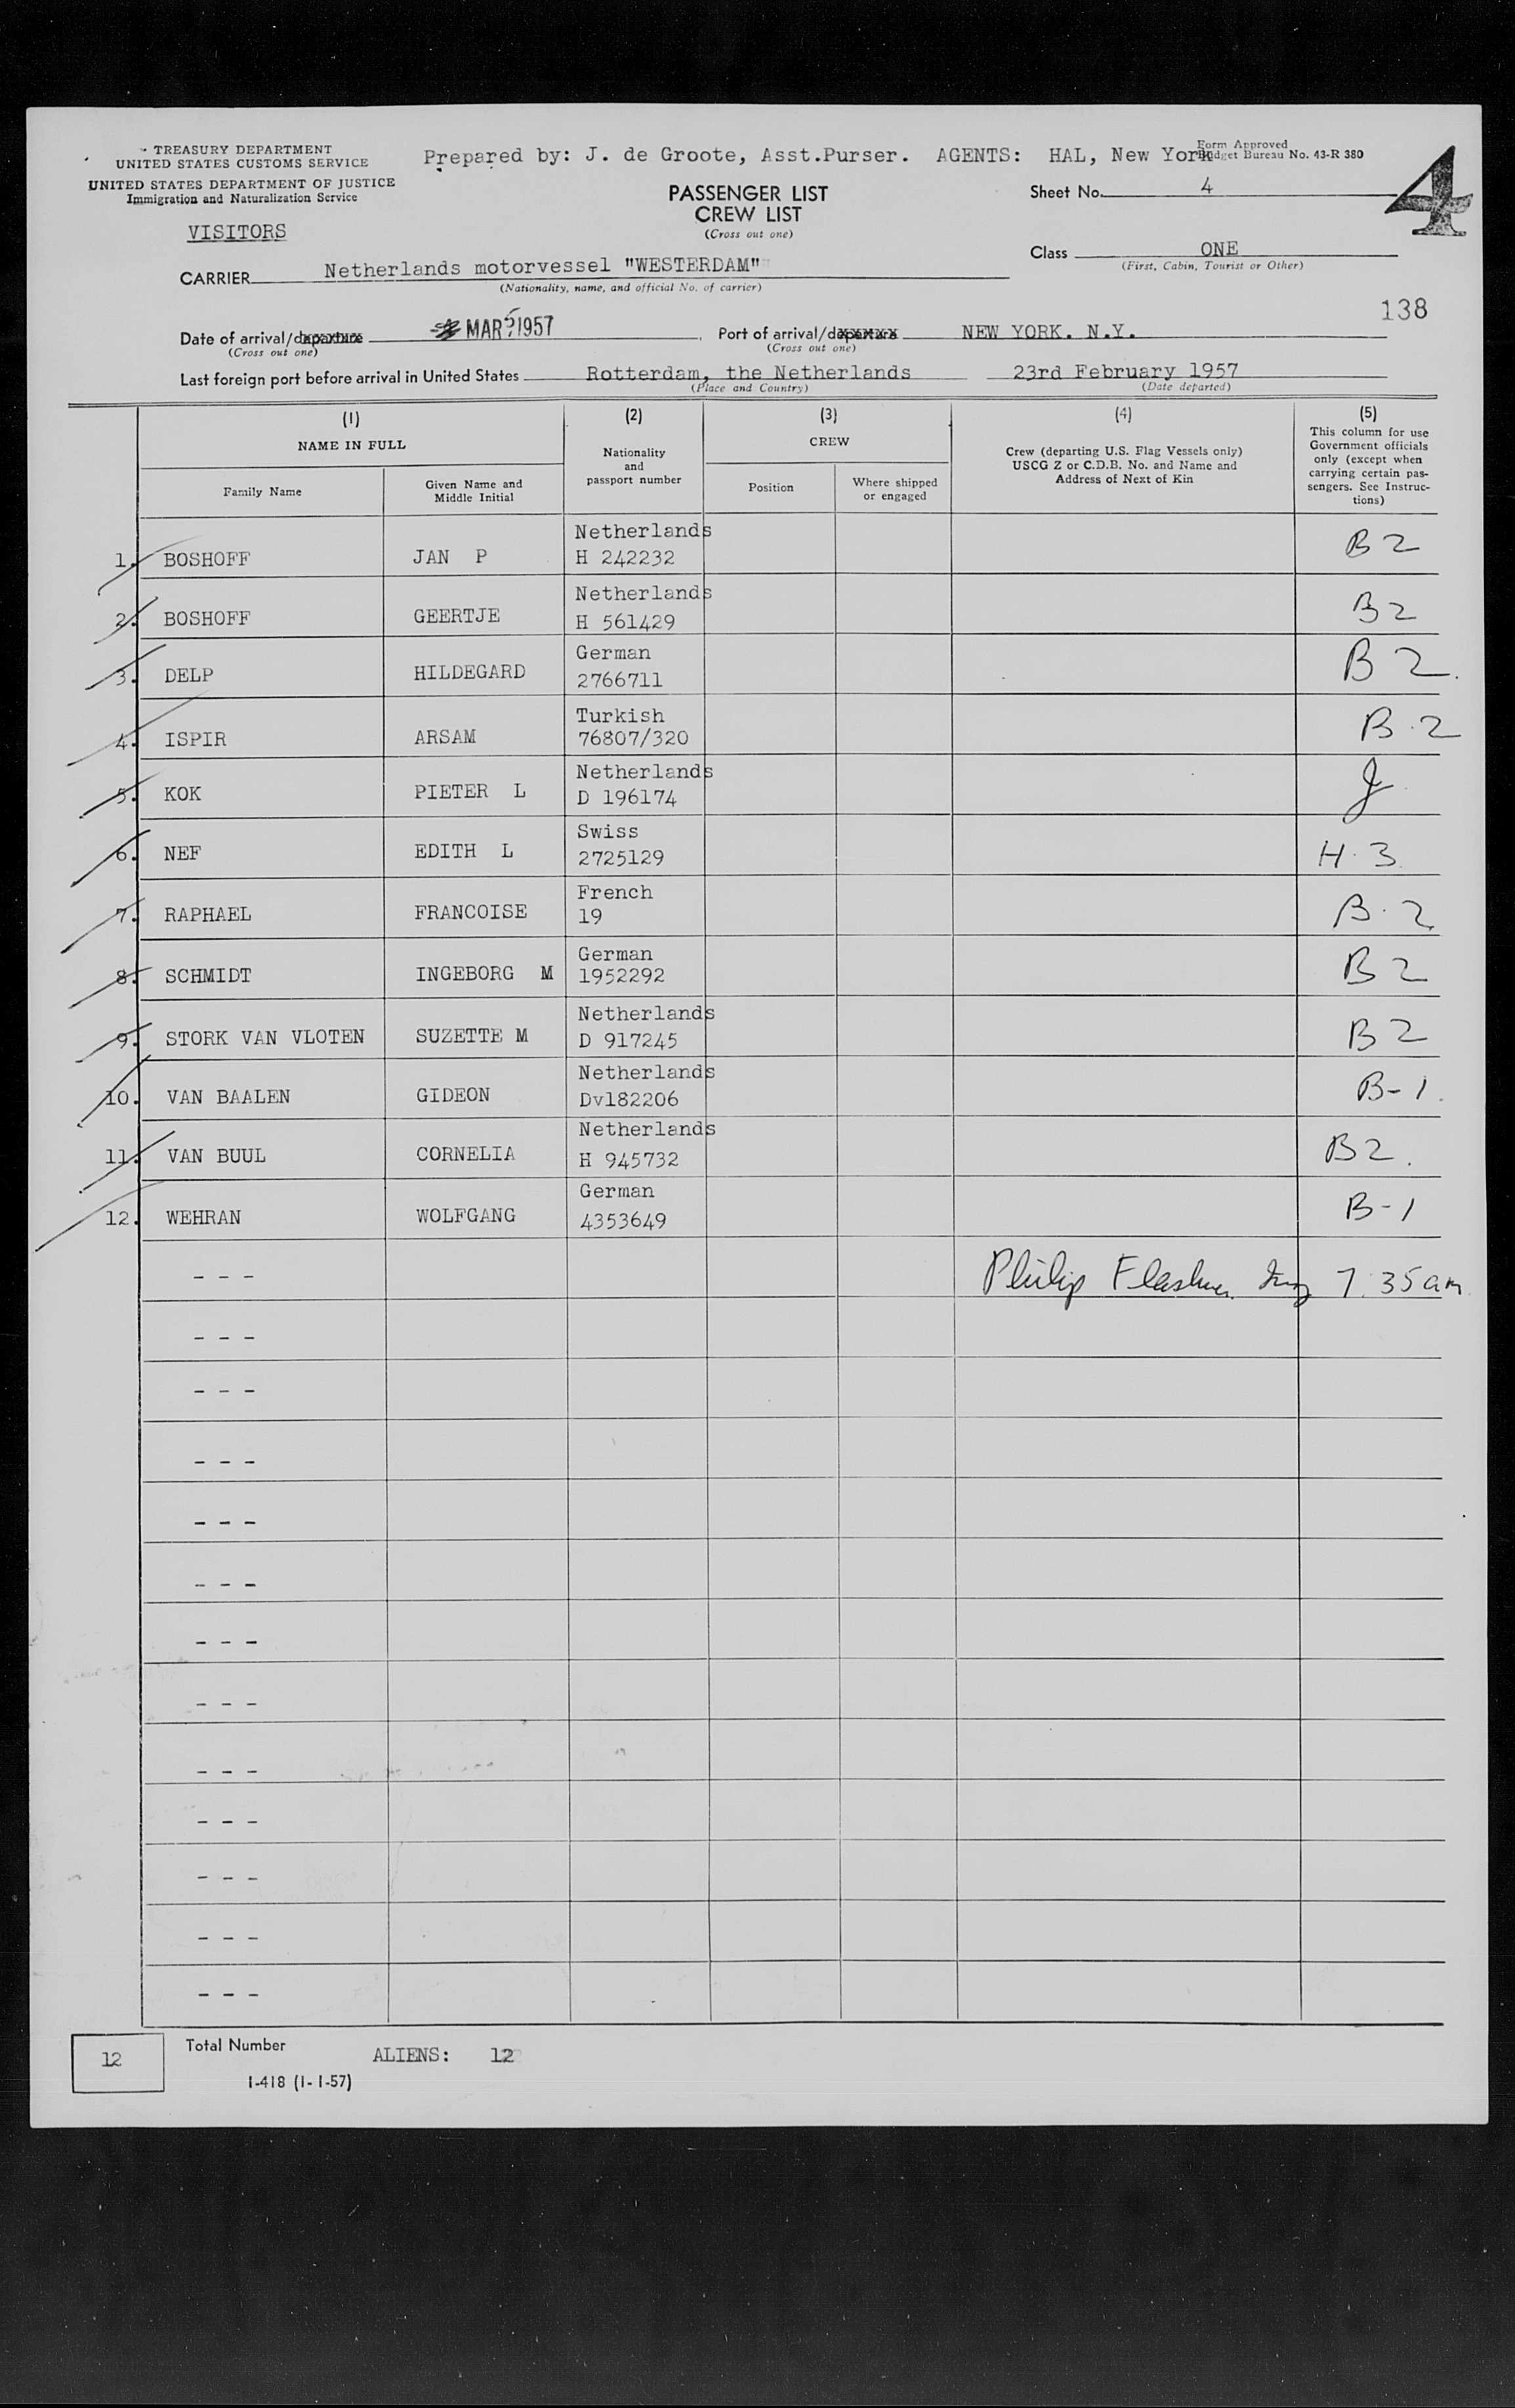 TREASURY DEPARTMENT
UNITED STATES CUSTOMS SERVICE
UNITED STATES DEPARTMENT OF JUSTICE
Immigration and Naturalization Service
Prepared by: J. de Groote, Asst.Purser. AGENTS: HAL, New York
Form Approved
Budget Bureau No. 43-R 380
PASSENGER LIST
CREW LIST
(Cross out one)
Sheet No. 4
4
VISITORS
Class ONE
(First, Cabin, Tourist or Other)
CARRIER Netherlands motorvessel "WESTERDAM"
(Nationality, name, and official No. of carrier)
138
Date of arrival/departure MAR 1957
(Cross out one)
Port of arrival/departure NEW YORK. N.Y.
(Cross out one)
Last foreign port before arrival in United States Rotterdam, the Netherlands 23rd February 1957
(Place and Country) (Date departed)
(1) (2) (3) (4) (5)
NAME IN FULL
Family Name
Given Name and
Middle Initial
Nationality
and
passport number
CREW
Position
Where shipped
or engaged
Crew (departing U.S. Flag Vessels only)
USCG Z or C.D.B. No. and Name and
Address of Next of Kin
This column for use
Government officials
only (except when
carrying certain pas-
sengers. See Instruc-
tions)
Netherlands
1. BOSHOFF JAN P H 242232 B2
Netherlands
2. BOSHOFF GEERTJE H 561429 B2
German
3. DELP HILDEGARD 2766711 B2.
Turkish
4. ISPIR ARSAM 76807/320 B.2
Netherlands
5. KOK PIETER L D 196174
Swiss
6. NEF EDITH L 2725129 H.3
French
7. RAPHAEL FRANCOISE 19 B.2
German
8. SCHMIDT INGEBORG M 1952292 B2
Netherlands
9. STORK VAN VLOTEN SUZETTE M D 917245 B2
Netherlands
10. VAN BAALEN GIDEON Dv182206 B-1.
Netherlands
11. VAN BUUL CORNELIA H 945732 B2.
German
12. WEHRAN WOLFGANG 4353649 B-1
- - - Philip 7.35 am
- - -
- - -
- - -
- - -
- - -
- - -
- - -
- - -
- - -
- - -
- - -
- - -
12 Total Number ALIENS: 12
I-418 (1-1-57)